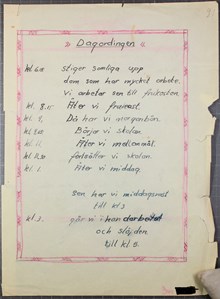 Dagordningen
kl. 6.00 stiger samliga upp
dom som har mycket arbete.
Vi arbetar sen till frukosten.
kl. 8.15. Äter vi frukost.
kl. 9. Då har vi morgonbön.
Börjar vi skolan.
kl. 11. Äter vi mellanmål.
kl. 11,30 fortsätter vi skolan.
kl. 1. Äter vi middag.
sen har vi middagsrast
till kl 3
kl. 3. går vi i handarbetet
och slöjden
till kl 5.